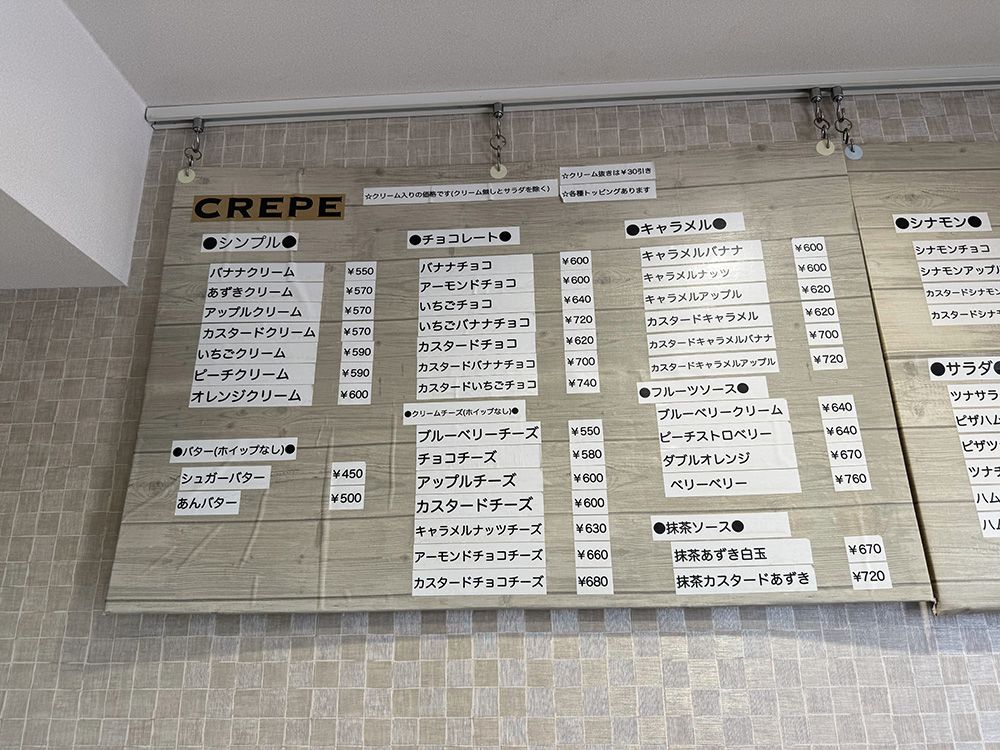 CREPE
☆クリーム入りの価格です(クリーム無しとサラダを除く)
☆クリーム抜きは￥30引き
☆各種トッピングあります
●シンプル●
バナナクリーム ￥550
あずきクリーム ￥570
アップルクリーム ￥570
カスタードクリーム ￥570
いちごクリーム ￥590
ピーチクリーム ￥590
オレンジクリーム ￥600
●バター(ホイップなし)●
シュガーバター ￥450
あんバター ￥500
●チョコレート●
バナナチョコ ￥600
アーモンドチョコ ￥600
いちごチョコ ￥640
いちごバナナチョコ ￥720
カスタードチョコ ￥620
カスタードバナナチョコ ￥700
カスタードいちごチョコ ￥740
●クリームチーズ(ホイップなし)●
ブルーベリーチーズ ￥550
チョコチーズ ￥580
アップルチーズ ￥600
カスタードチーズ ￥600
キャラメルナッツチーズ ￥630
アーモンドチョコチーズ ￥660
カスタードチョコチーズ ￥680
●キャラメル●
キャラメルバナナ ￥600
キャラメルナッツ ￥600
キャラメルアップル ￥620
カスタードキャラメル ￥620
カスタードキャラメルバナナ ￥700
カスタードキャラメルアップル ￥720
●フルーツソース●
ブルーベリークリーム ￥640
ピーチストロベリー ￥640
ダブルオレンジ ￥670
ベリーベリー ￥760
●抹茶ソース●
抹茶あずき白玉 ￥670
抹茶カスタードあずき ￥720
●シナモン●
シナモンチョコ
シナモンアップル
カスタードシナモン
カスタードシナモ
●サラダ●
ツナサラ
ピザハム
ピザツ
ピザ
ツナチ
ハム
ハム